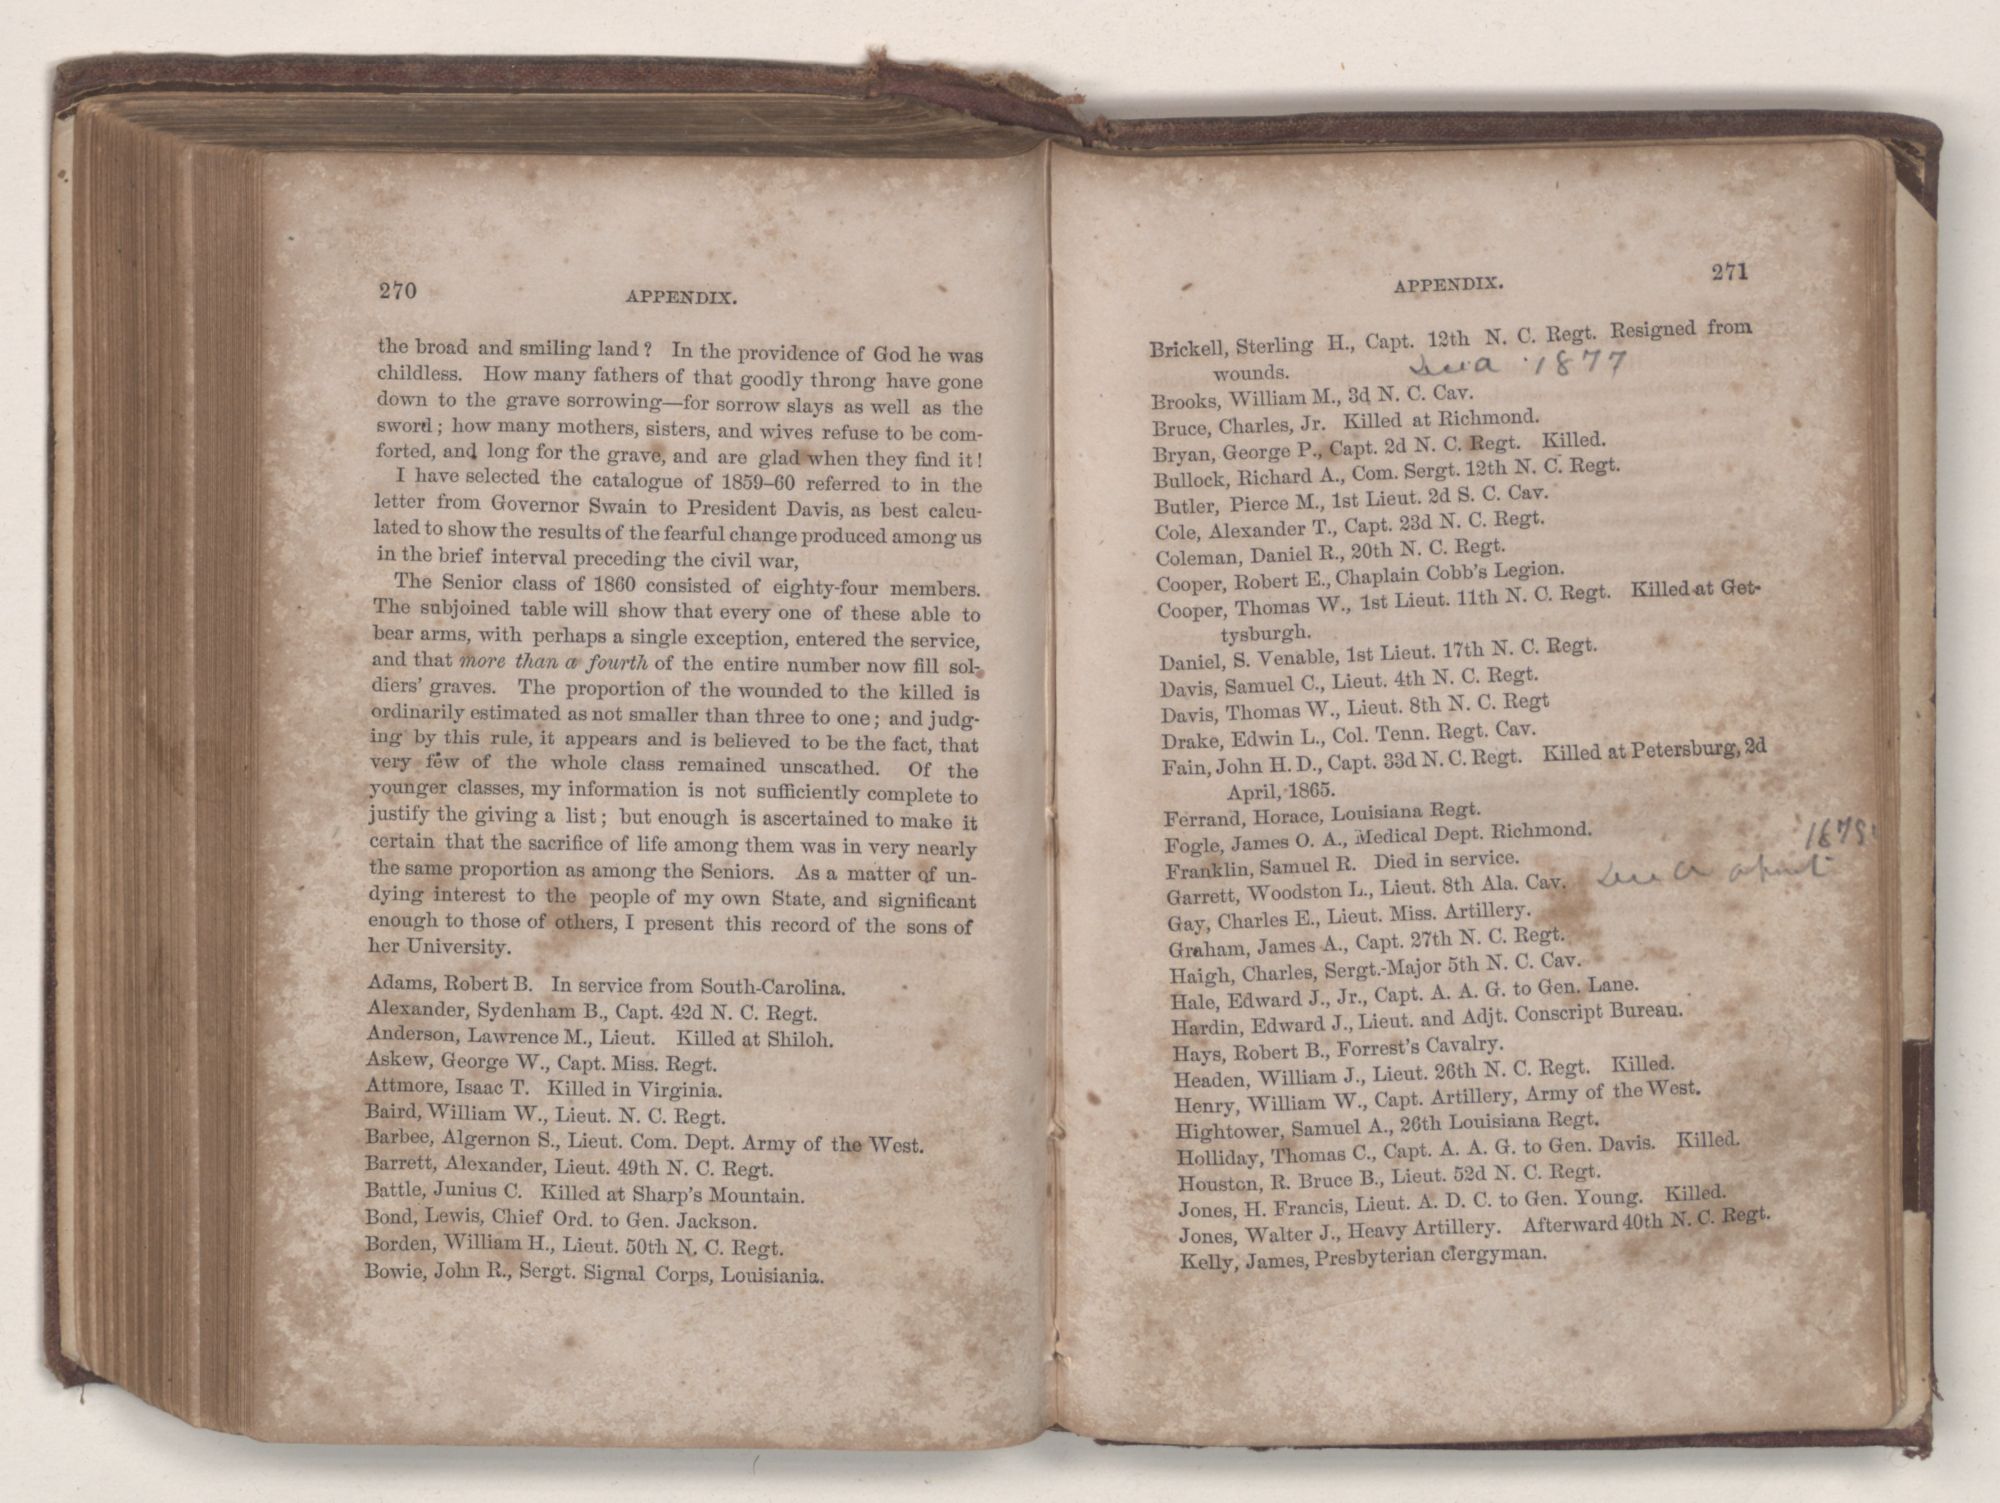 270
APPENDIX.
the broad and smiling land? In the providence of God he was
childless. How many fathers of that goodly throng have gone
down to the grave sorrowing—for sorrow slays as well as the
sword; how many mothers, sisters, and wives refuse to be com-
forted, and long for the grave, and are glad when they find it!
I have selected the catalogue of 1859–60 referred to in the
letter from Governor Swain to President Davis, as best calcu-
lated to show the results of the fearful change produced among us
in the brief interval preceding the civil war,
The Senior class of 1860 consisted of eighty-four members.
The subjoined table will show that every one of these able to
bear arms, with perhaps a single exception, entered the service,
and that more than a fourth of the entire number now fill sol-
diers' graves. The proportion of the wounded to the killed is
ordinarily estimated as not smaller than three to one; and judg-
ing by this rule, it appears and is believed to be the fact, that
very few of the whole class remained unscathed. Of the
younger classes, my information is not sufficiently complete to
justify the giving a list; but enough is ascertained to make it
certain that the sacrifice of life among them was in very nearly
the same proportion as among the Seniors. As a matter of un-
dying interest to the people of my own State, and significant
enough to those of others, I present this record of the sons of
her University.
Adams, Robert B. In service from South-Carolina.
Alexander, Sydenham B., Capt. 42d N. C. Regt.
Anderson, Lawrence M., Lieut. Killed at Shiloh.
Askew, George W., Capt. Miss. Regt.
Attmore, Isaac T. Killed in Virginia.
Baird, William W., Lieut. N. C. Regt.
Barbee, Algernon S., Lieut. Com. Dept. Army of the West.
Barrett, Alexander, Lieut. 49th N. C. Regt.
Battle, Junius C. Killed at Sharp's Mountain.
Bond, Lewis, Chief Ord. to Gen. Jackson.
Borden, William H., Lieut. 50th N. C. Regt.
Bowie, John R., Sergt. Signal Corps, Louisiania.
APPENDIX.
271
Brickell, Sterling H., Capt. 12th N. C. Regt. Resigned from
wounds. 1877
Brooks, William M., 3d N. C. Cav.
Bruce, Charles, Jr. Killed at Richmond.
Bryan, George P., Capt. 2d N. C. Regt. Killed.
Bullock, Richard A., Com. Sergt. 12th N. C. Regt.
Butler, Pierce M., 1st Lieut. 2d S. C. Cav.
Cole, Alexander T., Capt. 23d N. C. Regt.
Coleman, Daniel R., 20th N. C. Regt.
Cooper, Robert E., Chaplain Cobb's Legion.
Cooper, Thomas W., 1st Lieut. 11th N. C. Regt. Killed at Get-
tysburgh.
Daniel, S. Venable, 1st Lieut. 17th N. C. Regt.
Davis, Samuel C., Lieut. 4th N. C. Regt.
Davis, Thomas W., Lieut. 8th N. C. Regt
Drake, Edwin L., Col. Tenn. Regt. Cav.
Fain, John H. D., Capt. 33d N. C. Regt. Killed at Petersburg, 2d
April, 1865.
Ferrand, Horace, Louisiana Regt.
Fogle, James O. A., Medical Dept. Richmond.
Franklin, Samuel R. Died in service.
Garrett, Woodston L., Lieut. 8th Ala. Cav.
Gay, Charles E., Lieut. Miss. Artillery.
Graham, James A., Capt. 27th N. C. Regt.
Haigh, Charles, Sergt.-Major 5th N. C. Cav.
Hale, Edward J., Jr., Capt. A. A. G. to Gen. Lane.
Hardin, Edward J., Lieut. and Adjt. Conscript Bureau.
Hays, Robert B., Forrest's Cavalry.
Headen, William J., Lieut. 26th N. C. Regt. Killed.
Henry, William W., Capt. Artillery, Army of the West.
Hightower, Samuel A., 26th Louisiana Regt.
Holliday, Thomas C., Capt. A. A. G. to Gen. Davis. Killed.
Houston, R. Bruce B., Lieut. 52d N. C. Regt.
Jones, H. Francis, Lieut. A. D. C. to Gen. Young. Killed.
Jones, Walter J., Heavy Artillery. Afterward 40th N. C. Regt.
Kelly, James, Presbyterian clergyman.